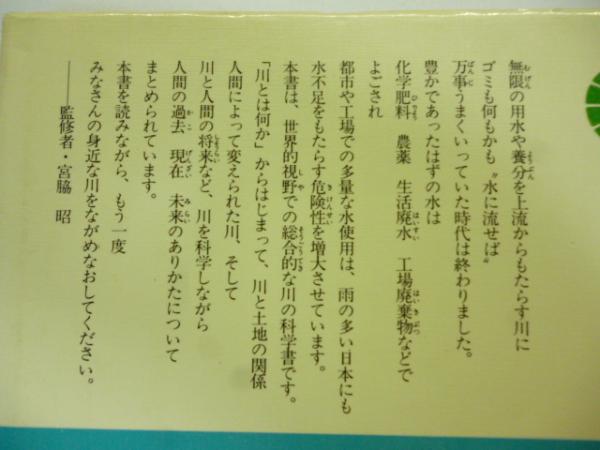 無限の用水や養分を上流からもたらす川に
ゴミも何もかも〝水に流せば〟
万事うまくいっていた時代は終わりました。
豊かであったはずの水は
化学肥料　農薬　生活廃水　工場廃棄物などで
よごされ
都市や工場での多量な水使用は、雨の多い日本にも
水不足をもたらす危険性を増大させています。
本書は、世界的視野での総合的な川の科学書です。
「川とは何か」からはじまって、川と土地の関係
人間によって変えられた川、そして
川と人間の将来など、川を科学しながら
人間の過去　現在　未来のありかたについて
まとめられています。
本書を読みながら、もう一度
みなさんの身近な川をながめなおしてください。
――監修者・宮脇　昭